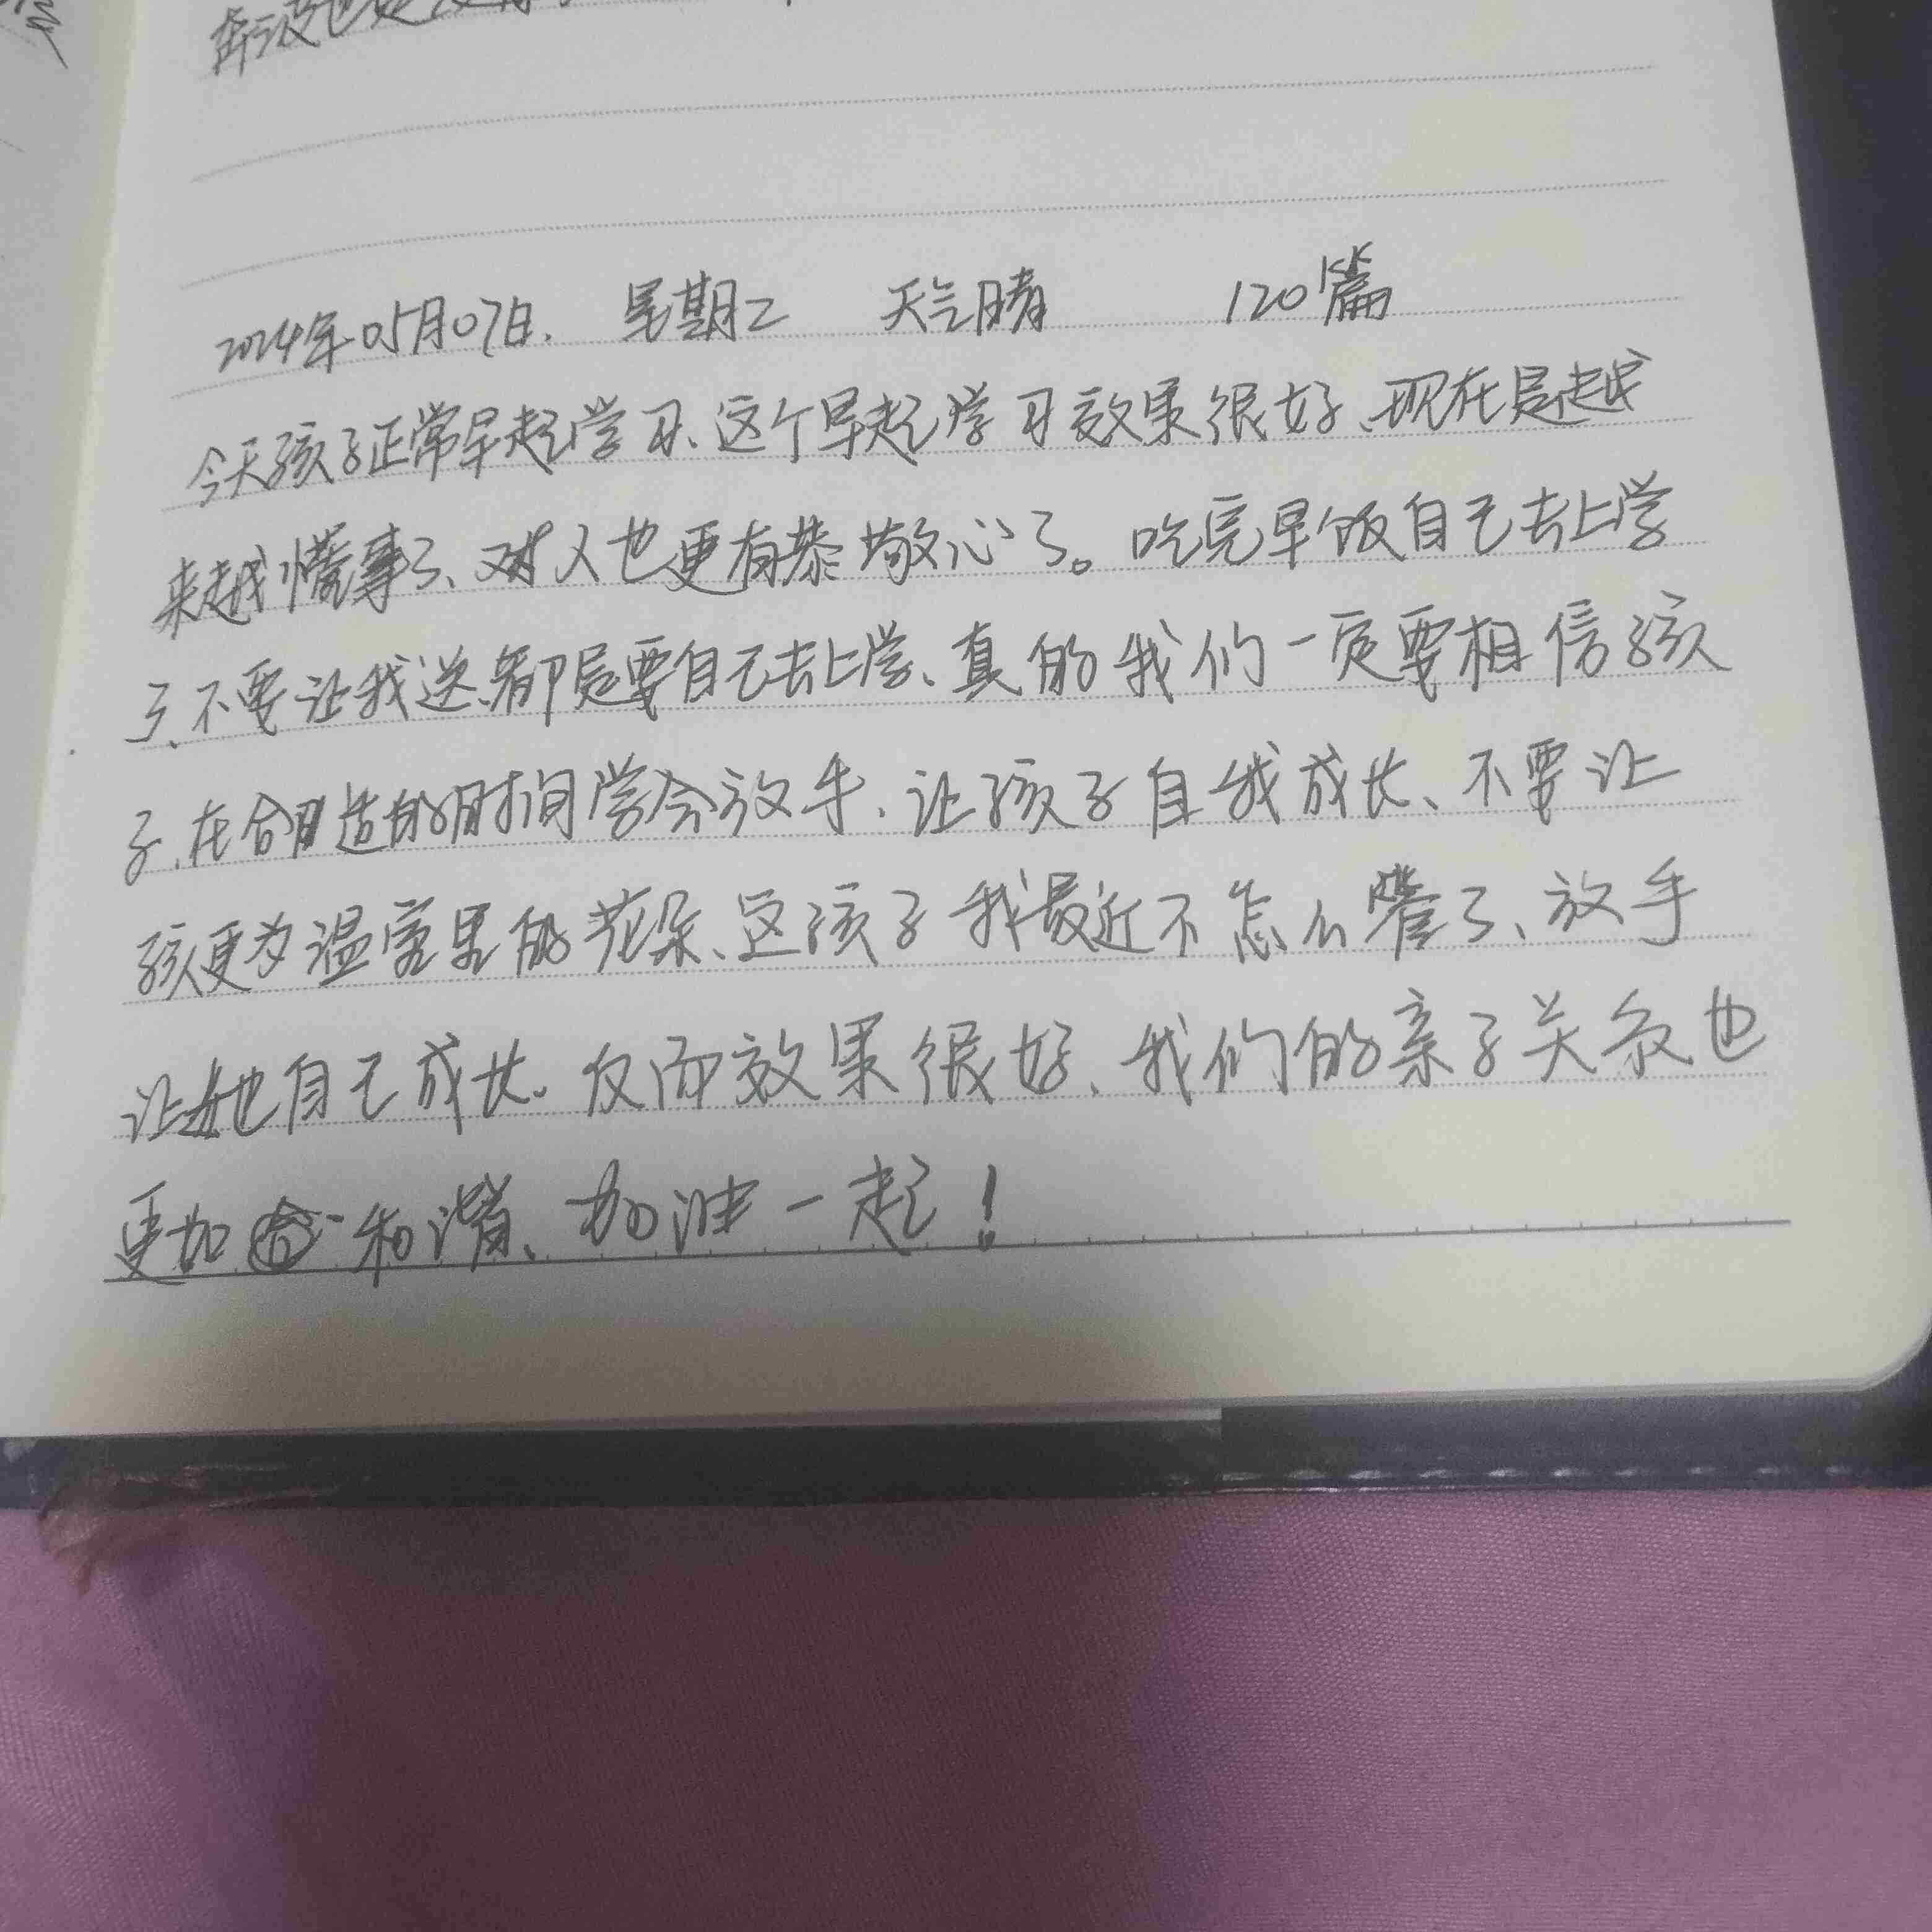 奔波也是
2024年05月07日. 星期二 天气晴 120篇
今天孩子正常早起学习、这个早起学习效果很好、现在是越
来越懂事了、对人也更有恭敬心了。吃完早饭自己去上学
了、不要让我送、都是要自己去上学、真的我们一定要相信孩
子、在合适的时间学会放手、让孩子自我成长、不要让
孩更为温室里的花朵、这孩子我最近不怎么管了、放手
让她自己成长。反而效果很好、我们的亲子关系也
更加和谐、加油一起！